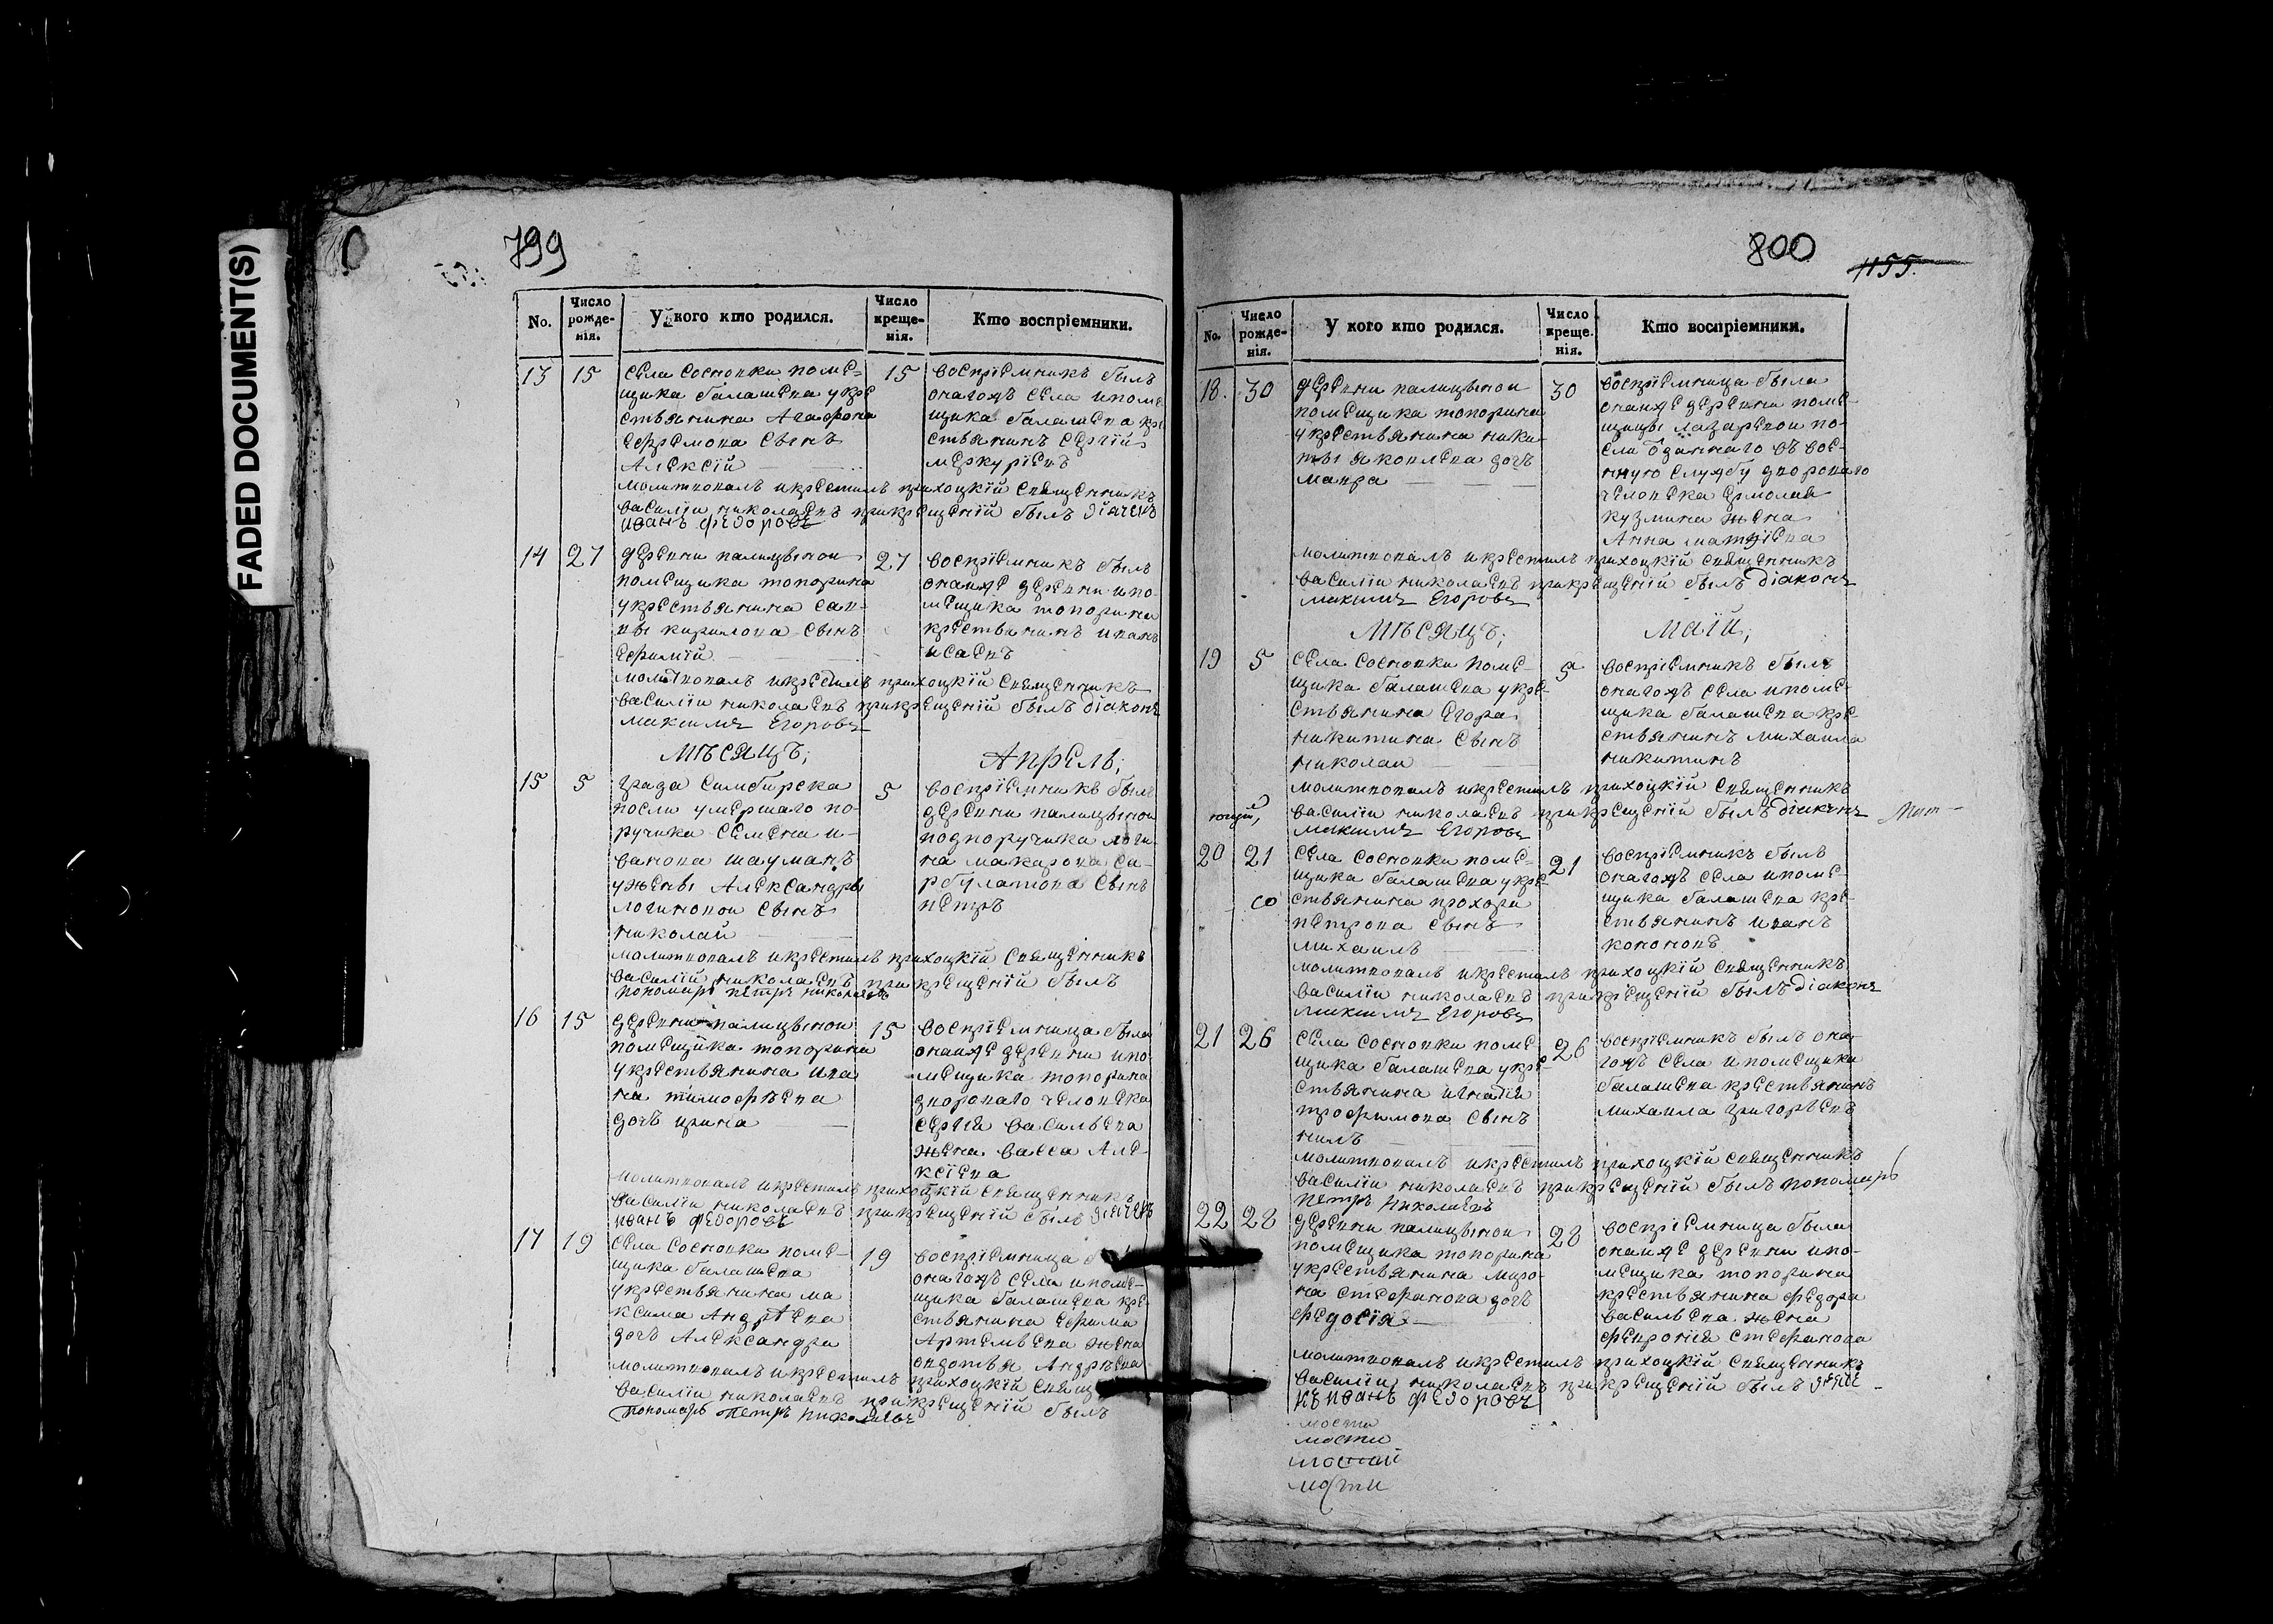 FADED DOCUMENT(S)
799
No.
Число рожде-нія.
У кого кто родился.
Число креще-нія.
Кто воспріемники.
13 15
села сосновки поме-
щика балашева укре
стьянина Агафона
ефремова сынъ
Алексій
15
воспріемникъ былъ
онагожъ села ипоме
щика балашева кре
стьянинъ сергій
меркуріевъ
молитвовалъ икрестилъ прихоцкій священникъ
василіи николаевъ прикрещеній былъ діячекъ
иванъ федоровъ
14 27
деревни палицыной
помещика топорина
укрестьянина сав-
вы кирилова сынъ
ефимій
27
воспріемникъ былъ
онаиже деревни ипо-
мещика топорина
крестьянинъ иванъ
исаевъ
молитвовалъ икрестилъ прихоцкій священникъ
василіи николаевъ прикрещеній былъ діаконъ
максимъ Егоровъ
Мѣсяцъ; Апрель;
15 5
града симбирска
посли умершаго по-
ручика семена и-
ванова шауманъ
ужены Александры
логиновой сынъ
николай
5
воспріемникъ былъ
деревни палицыной
подпоручика логи-
на макарова са-
рбулатова сынъ
петръ
молитвовалъ икрестилъ прихоцкій священникъ
василій николаевъ прикрещеній былъ
пономарь петръ николаевъ
16 15
деревни палицыной
помещика топорина
укрестьянина ива
на тимофѣева
дочь ирина
15
воспріемница была
онаиже деревни ипо
мещика топорина
двороваго человека
сергія васильева
жена васса Але-
ксіева
молитвовалъ икрестилъ прихоцкій священникъ
василіи николаевъ прикрещеній былъ діячекъ
иванъ федоровъ
17 19
села сосновки поме-
щика балашева
укрестьянина ма
ксима Андрѣева
дочь Александра
19
воспріемница
онагожъ села ипоме-
щика балашева кре
стьянина ефима
Артемьева жена
авдотья Андрѣева
молитвовалъ икрестилъ прихоцкій
василіи николаевъ прикрещеній былъ
пономарь петръ николаевъ
800
1155.
No.
Число рожде-нія.
У кого кто родился.
Число креще-нія.
Кто воспріемники.
18. 30
деревни палицыной
помещика топорина
укрестьянина ники-
ты яковлева дочь
мавра
30
воспріемница была
онаиже деревни поме-
щицы лазаревой по-
сли отданнаго въ вое-
нную службу двороваго
человека ермолая
кузмина жена
Анна матвіева
молитвовалъ икрестилъ прихоцкій священникъ
василіи николаевъ прикрещеній былъ діаконъ
максимъ Егоровъ
Мѣсяцъ; Маій;
19 5
села сосновки поме-
щика балашева укре-
стьянина егора
никитина сынъ
николаи
5
воспріемникъ былъ
онагожъ села ипоме-
щика балашева кре-
стьянинъ михаила
никитинъ
молитвовалъ икрестилъ прихоцкій священникъ
василіи николаевъ прикрещеній былъ діаконъ
максимъ Егоровъ
20 21
села сосновки поме-
щика балашева укре-
со стьянина прохора
петрова сынъ
михаилъ
21
воспріемникъ былъ
онагожъ села ипоме-
щика балашева кре-
стьянинъ иванъ
кононовъ
молитвовалъ икрестилъ прихоцкій священникъ
василіи николаевъ прикрещеній былъ діаконъ
максимъ Егоровъ
21 26
села сосновки поме-
щика балашева укре-
стьянина игнатія
трофимова сынъ
нилъ
26
воспріемникъ былъ она-
гожъ села ипомещика
балашева крестьянинъ
михаила григорьевъ
молитвовалъ икрестилъ прихоцкій священникъ
василіи николаевъ прикрещеній былъ пономарь
петръ николаевъ
22 28
деревни палицыной
помещика топорина
укрестьянина миро-
на стефанова дочь
федосія
28
воспріемница была
онаиже деревни ипо-
мещика топорина
крестьянина федора
васильева жена
феврония стефанова
молитвовалъ икрестилъ прихоцкій священникъ
василіи николаевъ прикрещеній былъ діяче-
къ иванъ федоровъ
мости
мости
мости